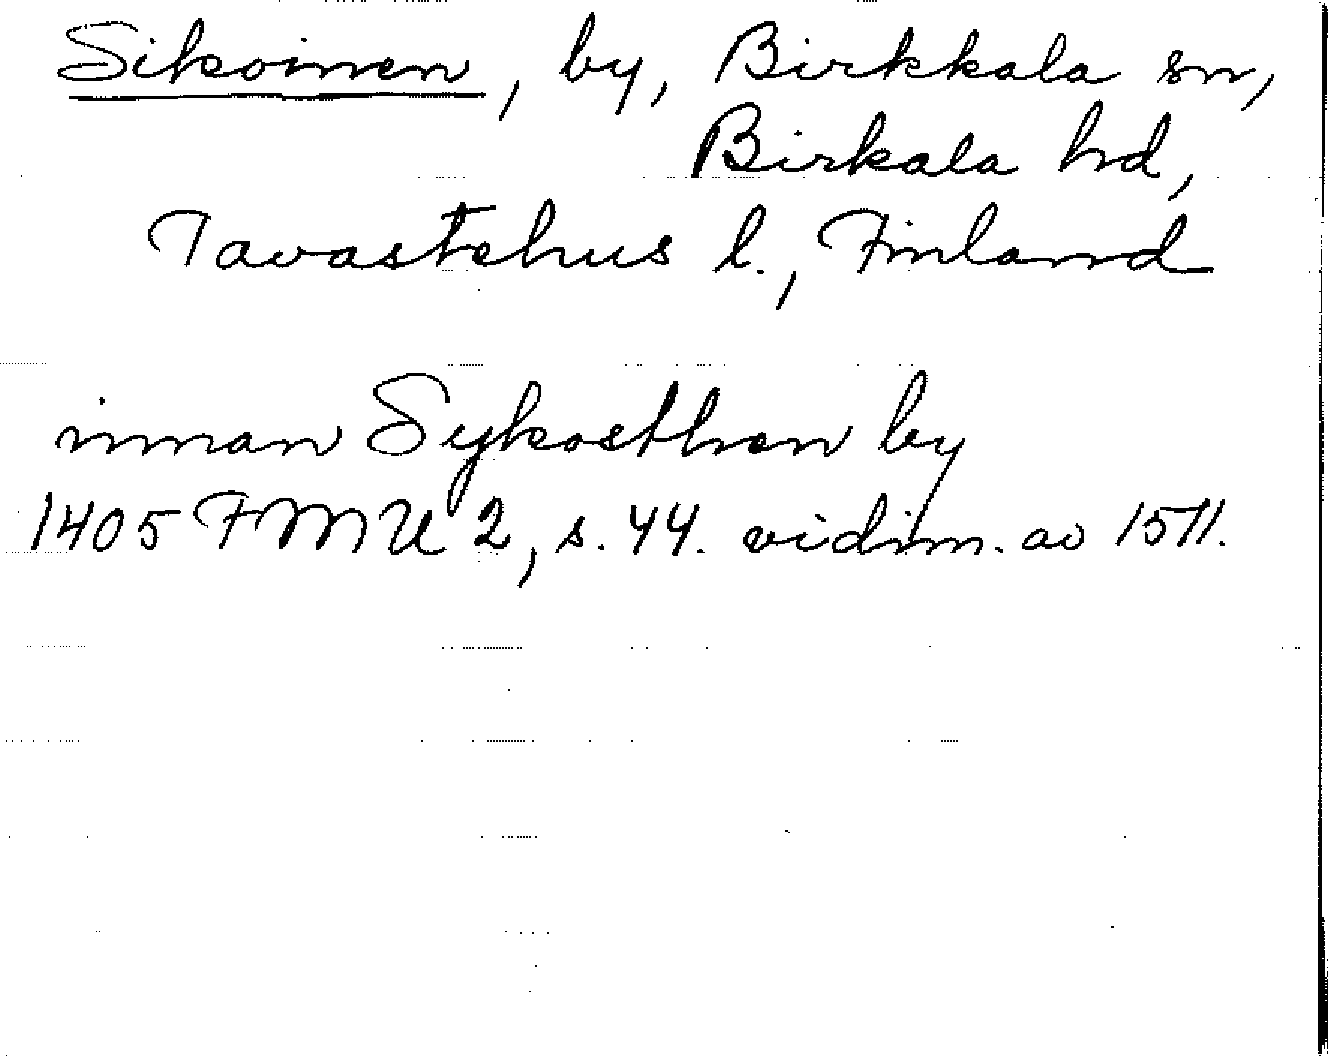 Sikoinen, by, Birkkala sn,
Birkala hd,
Tavastehus l., Finland
innan Sykosthen by
1405 FMU 2, s. 44. vidim. av 1511.